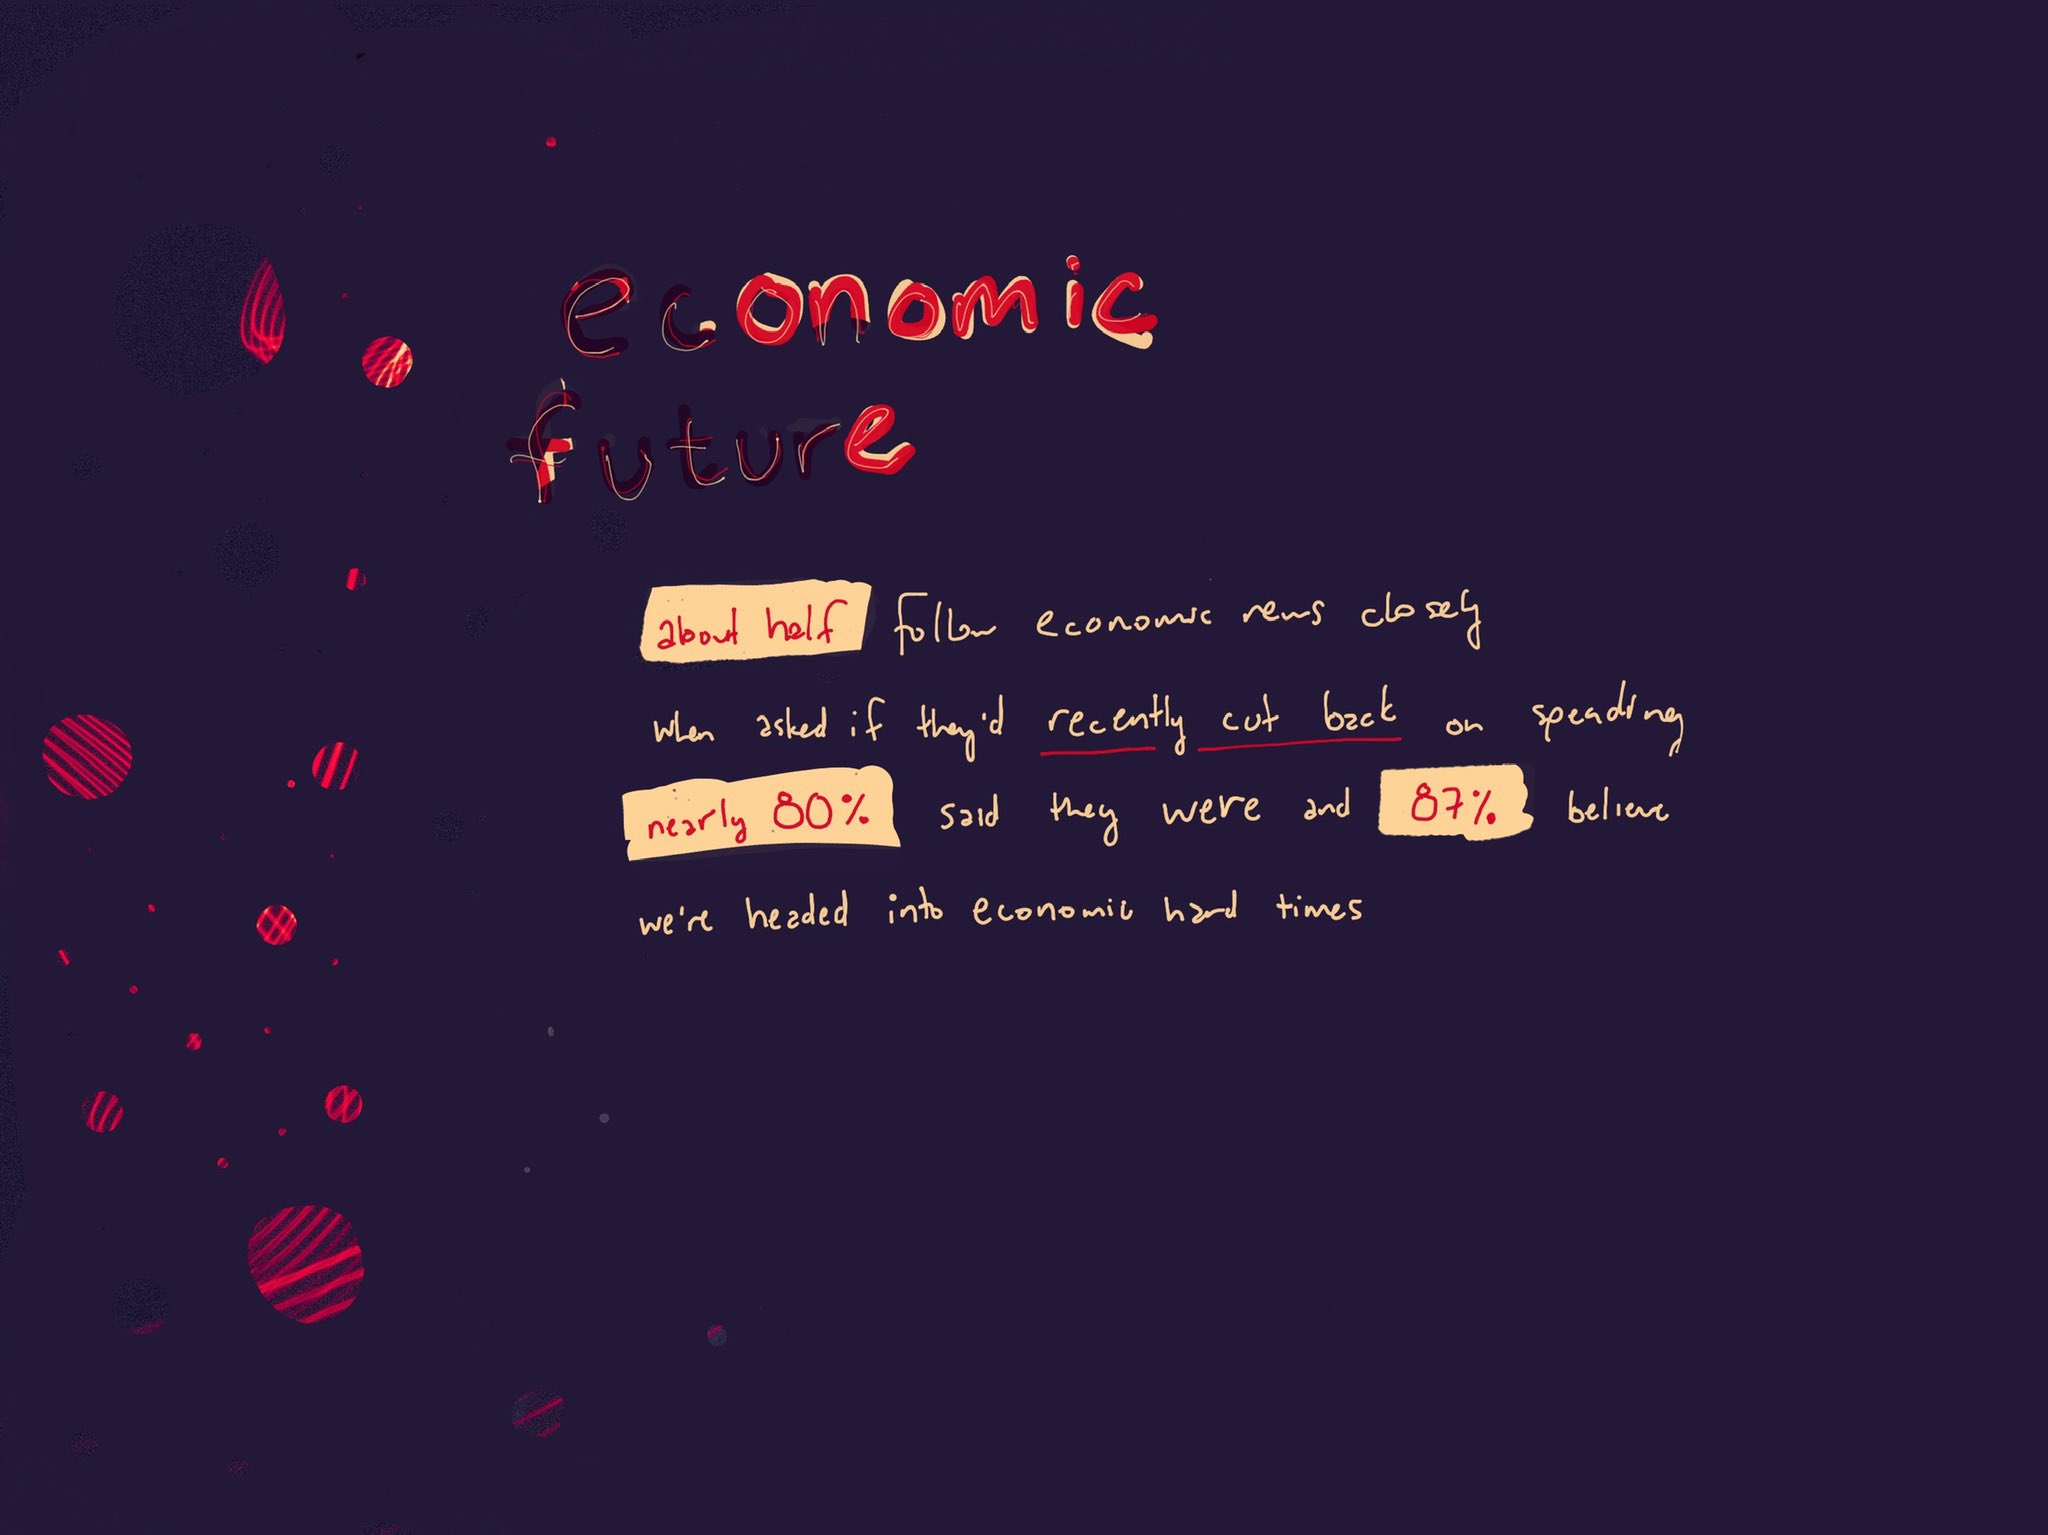 economic
future
about half follow economic news closely
when asked if they'd recently cut back on spending
nearly 80% said they were and 87% believe
we're headed into economic hard times